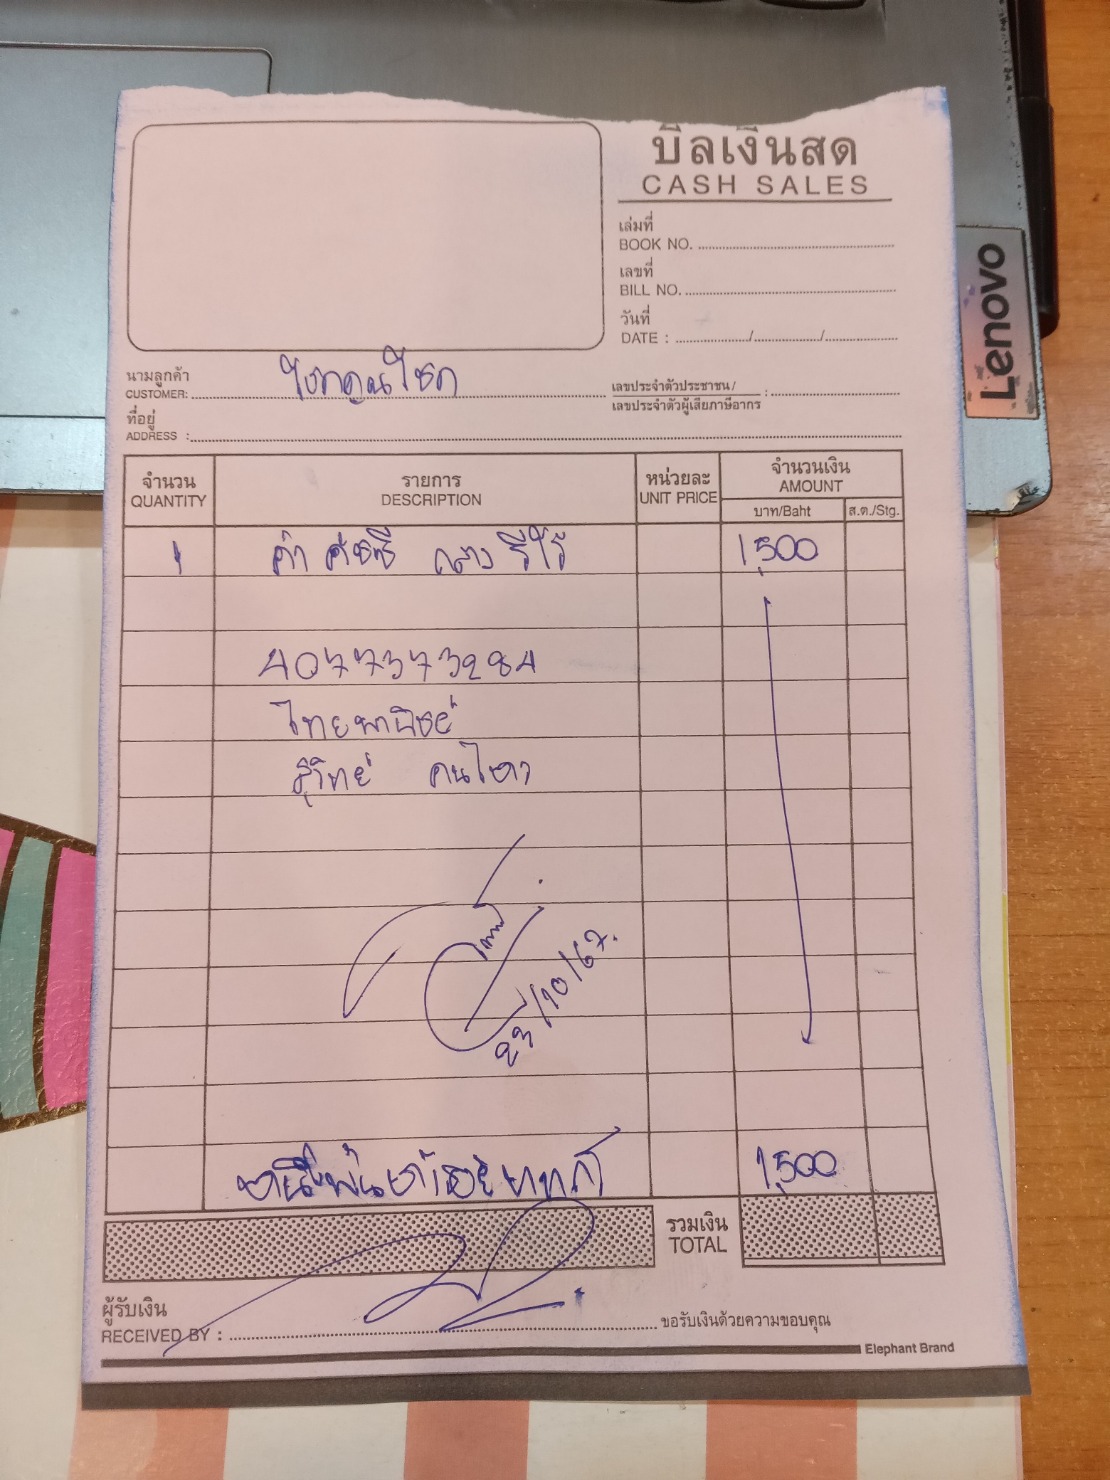 บิลเงินสด
CASH SALES
เล่มที่
BOOK NO.
เลขที่
BILL NO.
วันที่
DATE : / /
Lenovo
นามลูกค้า
CUSTOMER: โชคคูณโชค
เลขประจำตัวประชาชน /
เลขประจำตัวผู้เสียภาษีอากร :
ที่อยู่
ADDRESS :
จำนวน รายการ หน่วยละ จำนวนเงิน
QUANTITY DESCRIPTION UNIT PRICE AMOUNT
บาท/Baht ส.ต./Stg.
1 ค่า 1,500
4077373284
ไทยพานิชย์
23/10/67.
1,500
รวมเงิน
TOTAL
ผู้รับเงิน
RECEIVED BY : ขอรับเงินด้วยความขอบคุณ
Elephant Brand